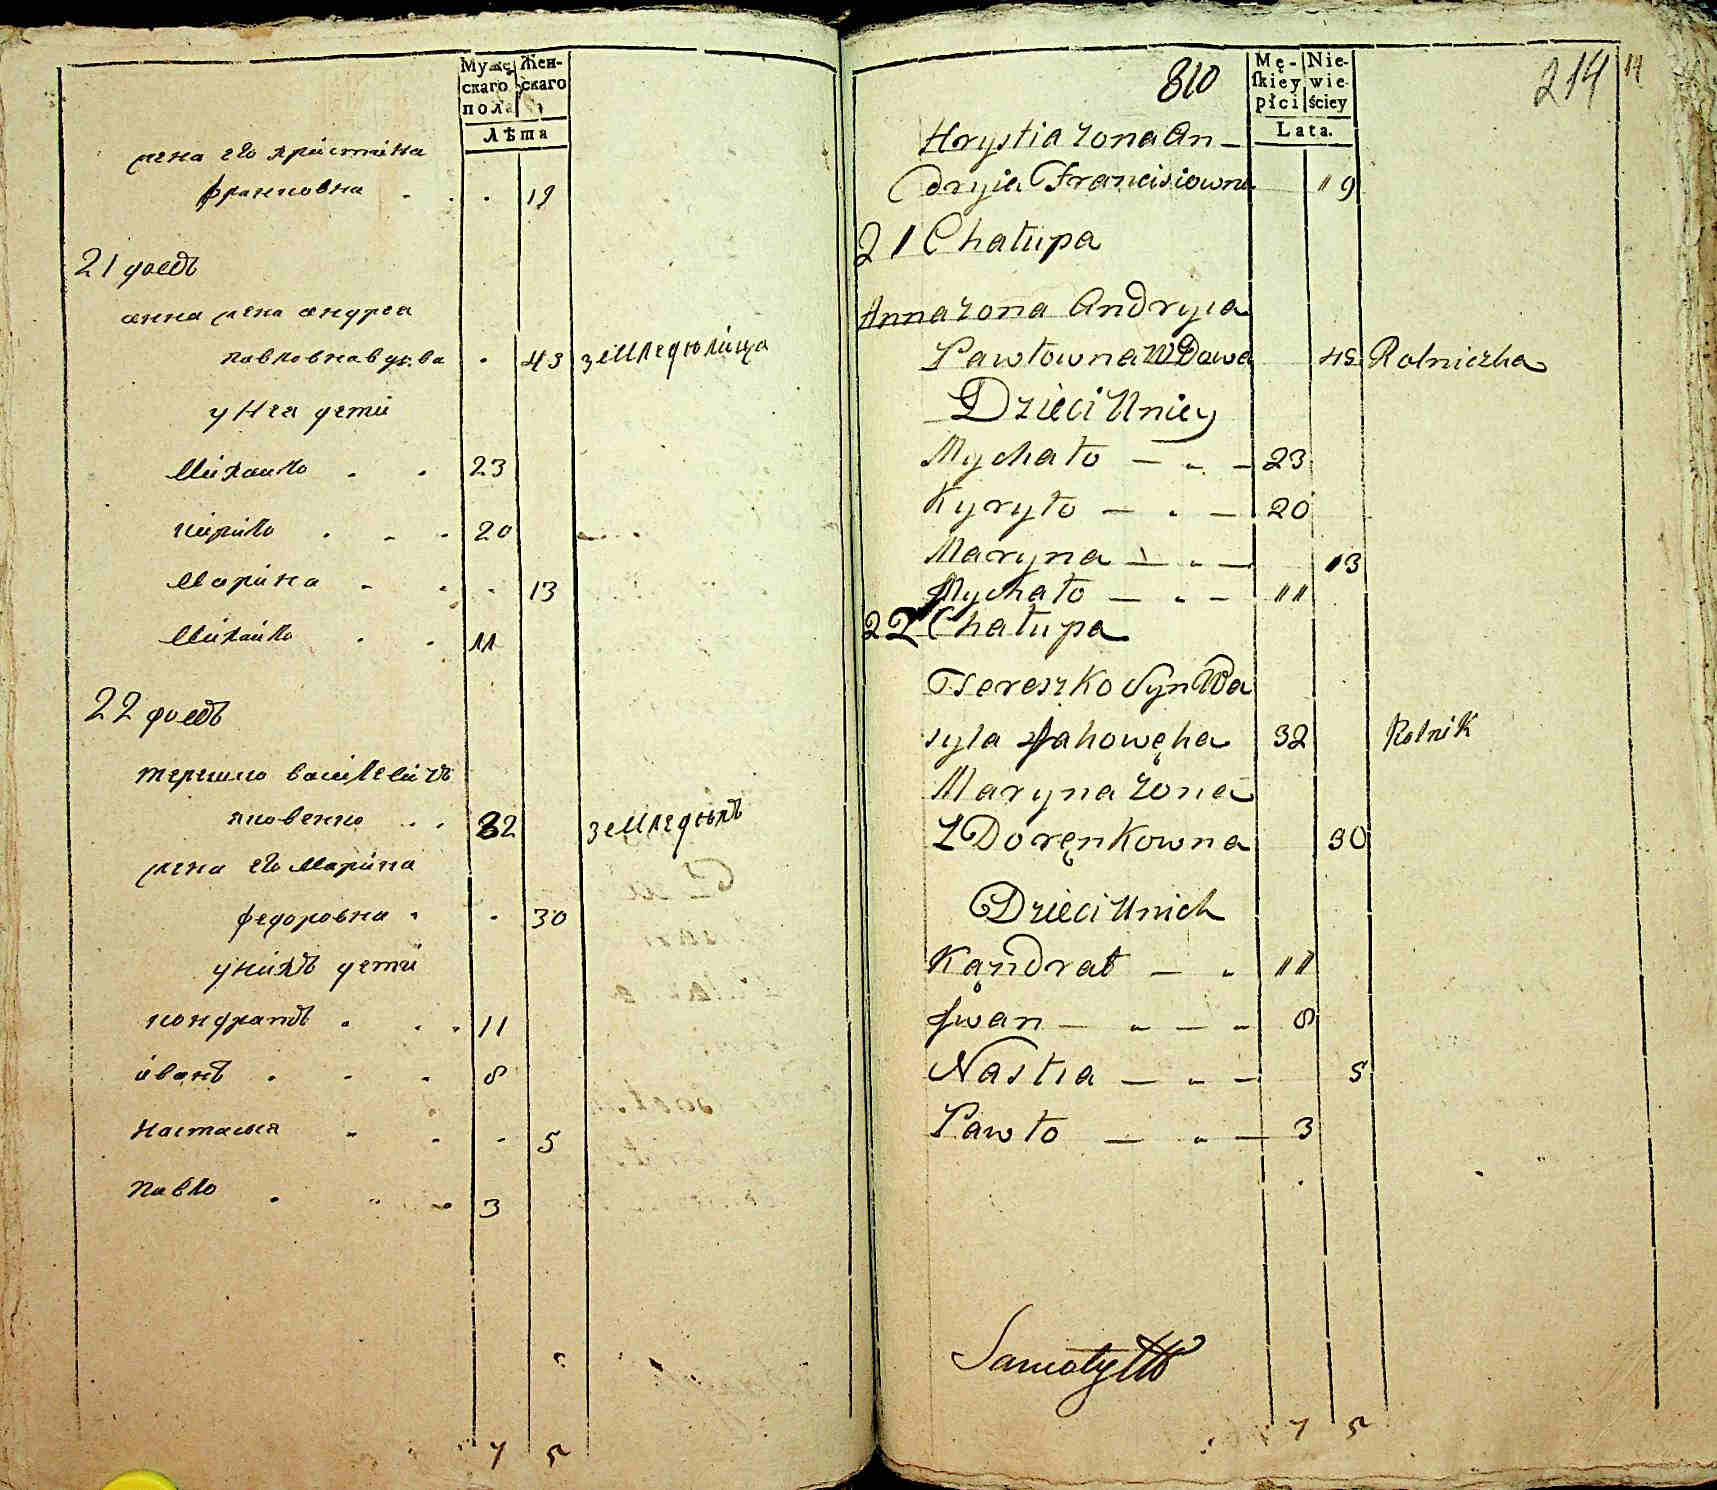 Мужескаго пола
Женскаго
лѣта
жена его христина
францовна . . . 19
21 домъ
анна жена андрея
павловна вдова . 43 земледюлица
у нея дети
михаило . . 23
кирило . . . 20
марина . . . 13
михаило . . 11
22 домъ
терешко василевичъ
яковенко . . 32 земледюлъ
жена его марина
федоровна . . 30
у нихъ дети
кондратъ . . . 11
иванъ . . . 8
настасия . . . 5
павло . . . 3
7 5
810
Męskiey płci
Niewieściey
Lata.
214
Hrystia zona An-
dryia Francisiowna 19
21 Chałupa
Anna zona Andryia
Pawłowna Wdowa 43 Rolniczka
Dzieci Uniey
Mychało — „ — 23
Kyryło — „ — 20
Maryna — „ — 13
Mychało — „ — 11
22 Chałupa
Tereszko Syn Wa
syla Jakowęka 32 Rolnik
Maryna zona
Z Doręnkowna 30
Dzieci Unich
Kąndrat — „ 11
Jwan — „ — „ 8
Nastia — „ — 5
Pawło — „ — 3
7 5